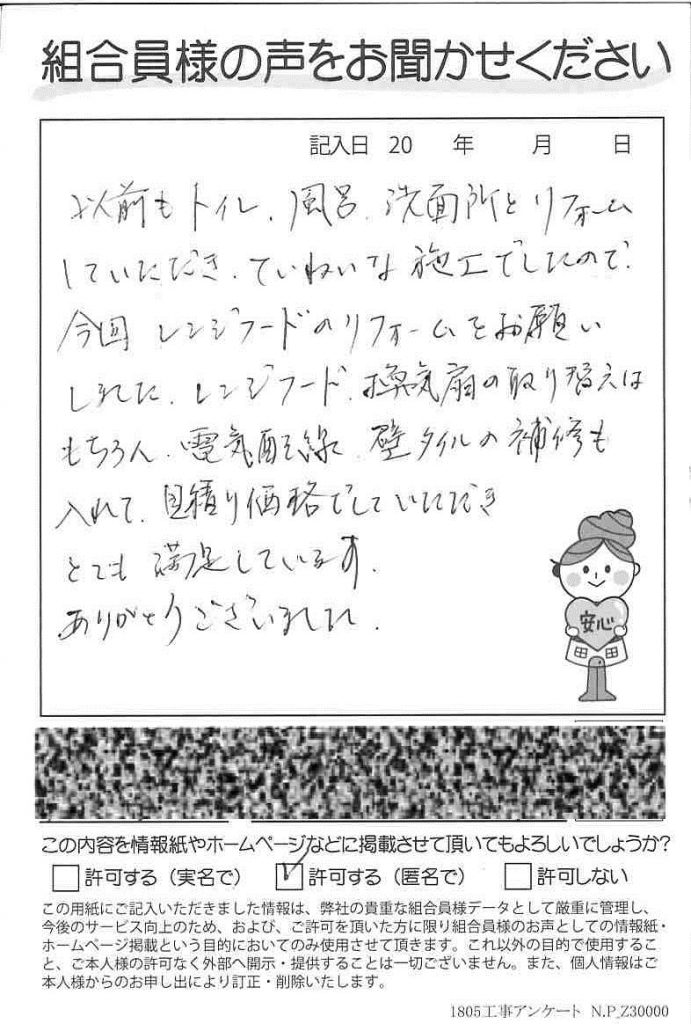 組合員様の声をお聞かせください
記入日 20 年 月 日
以前もトイレ、風呂、洗面所とリフォーム
していただき、ていねいな施工でしたので、
今回 レンジフードのリフォームをお願い
しました。レンジフード、換気扇の取り替えは
もちろん、電気配線、壁タイルの補修も
入れて、見積り価格でしていただき
とても満足しています。
ありがとうございました。
安心
この内容を情報紙やホームページなどに掲載させて頂いてもよろしいでしょうか?
許可する(実名で) 許可する(匿名で) 許可しない
この用紙にご記入いただきました情報は、弊社の貴重な組合員様データとして厳重に管理し、
今後のサービス向上のため、および、ご許可を頂いた方に限り組合員様のお声としての情報紙・
ホームページ掲載という目的においてのみ使用させて頂きます。これ以外の目的で使用するこ
と、ご本人様の許可なく外部へ開示・提供することは一切ございません。また、個人情報はご
本人様からのお申し出により訂正・削除いたします。
1805工事アンケート N.P_Z30000